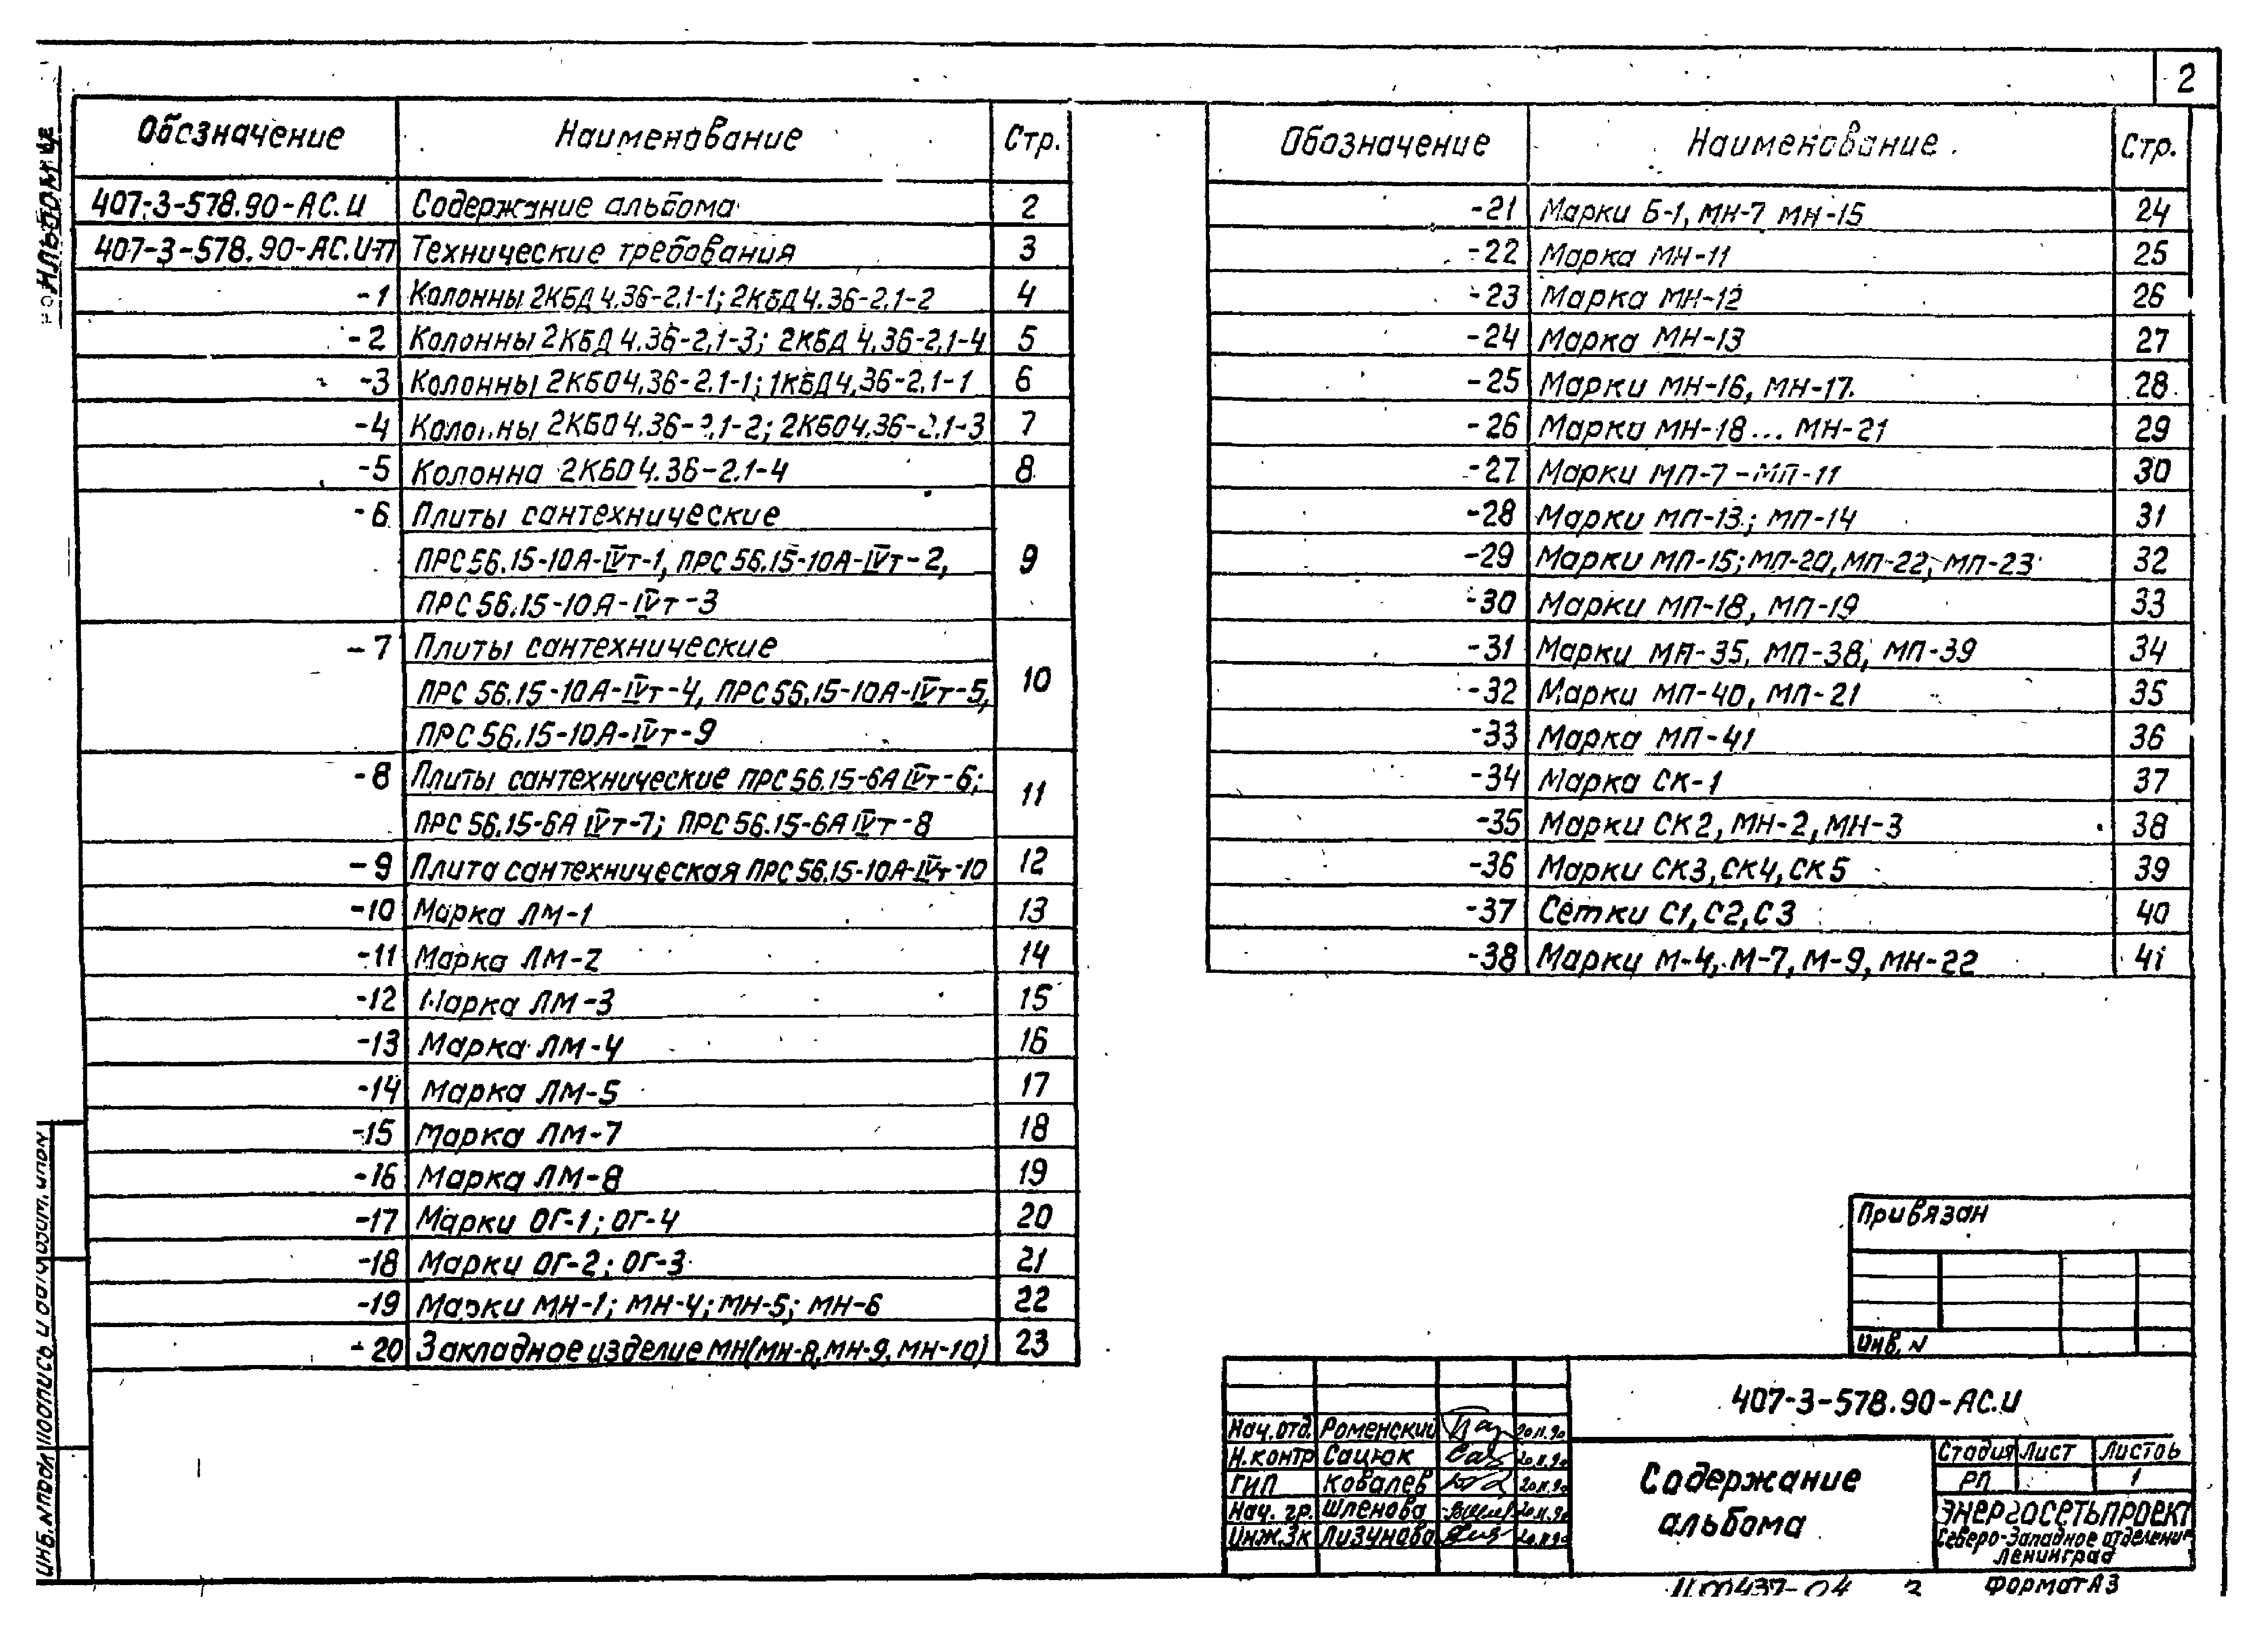 2
Обозначение Наименование Стр.
407-3-578.90-АС.И Содержание альбома 2
407-3-578.90-АС.И-ТТ Технические требования 3
-1 Колонны 2КБД 4.36-2.1-1; 2КБД 4.36-2.1-2 4
-2 Колонны 2КБД 4.36-2.1-3; 2КБД 4.36-2.1-4 5
-3 Колонны 2КБО4.36-2.1-1; 1КБД4.36-2.1-1 6
-4 Колонны 2КБО4.36-2.1-2; 2КБО4.36-2.1-3 7
-5 Колонна 2КБО4.36-2.1-4 8
-6 Плиты сантехнические
ПРС56.15-10А-IVт-1, ПРС56.15-10А-IVт-2, 9
ПРС56.15-10А-IVт-3
-7 Плиты сантехнические
ПРС56.15-10А-IVт-4, ПРС56.15-10А-IVт-5, 10
ПРС56.15-10А-IVт-9
-8 Плиты сантехнические ПРС56.15-6АIVт-6; 11
ПРС56.15-6АIVт-7; ПРС56.15-6АIVт-8
-9 Плита сантехническая ПРС56.15-10А-IVт-10 12
-10 Марка ЛМ-1 13
-11 Марка ЛМ-2 14
-12 Марка ЛМ-3 15
-13 Марка ЛМ-4 16
-14 Марка ЛМ-5 17
-15 Марка ЛМ-7 18
-16 Марка ЛМ-8 19
-17 Марки ОГ-1; ОГ-4 20
-18 Марки ОГ-2; ОГ-3 21
-19 Марки МН-1; МН-4; МН-5; МН-6 22
-20 Закладное изделие МН(МН-8, МН-9, МН-10) 23
Обозначение Наименование Стр.
-21 Марки Б-1, МН-7 МН-15 24
-22 Марка МН-11 25
-23 Марка МН-12 26
-24 Марка МН-13 27
-25 Марки МН-16, МН-17. 28
-26 Марки МН-18... МН-21 29
-27 Марки МП-7-МП-11 30
-28 Марки МП-13; МП-14 31
-29 Марки МП-15; МП-20, МП-22, МП-23 32
-30 Марки МП-18, МП-19 33
-31 Марки МП-35, МП-38, МП-39 34
-32 Марки МП-40, МП-21 35
-33 Марка МП-41 36
-34 Марка СК-1 37
-35 Марки СК2, МН-2, МН-3 38
-36 Марки СК3, СК4, СК5 39
-37 Сетки С1, С2, С3 40
-38 Марки М-4, М-7, М-9, МН-22 41
Привязан
Инв. N
407-3-578.90-АС.И
Нач. отд. Роменский 20.11.90
Н.контр Сацюк 20.11.90
ГИП Ковалев 20.11.90
Нач. гр. Шленова 20.11.90
Инж.3к Лизунова 20.11.90
Содержание
альбома
Стадия Лист Листов
РП 1
ЭНЕРГОСЕТЬПРОЕКТ
Северо-Западное отделение
Ленинград
Формат А3